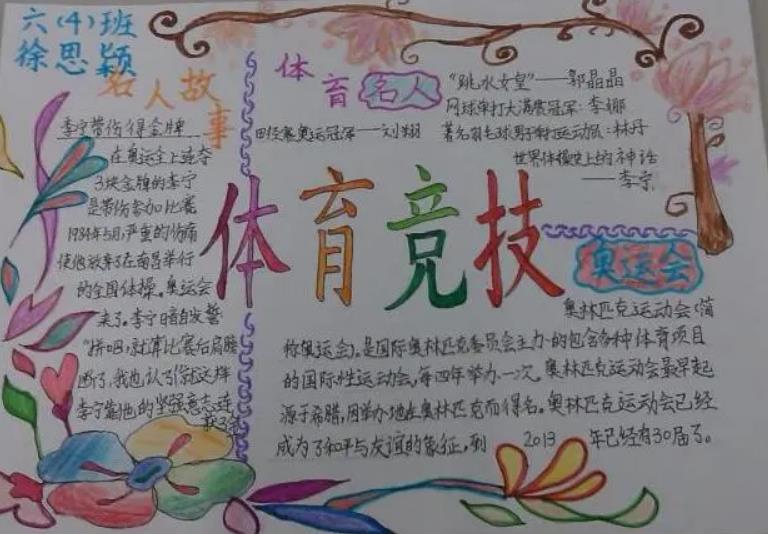 六(4)班
徐思颖
名人故事
李宁带伤得金牌
在奥运会上连夺
3块金牌的李宁
是带伤参加比赛
1984年5月,严重的伤痛
使他放弃了在南昌举行
的全国体操。奥运会
来了。李宁暗自发誓
"拼吧,就算比赛后肩膀
断了,我也认了"就这样
李宁靠他的坚强意志连
获3金
体育名人
"跳水女皇"——郭晶晶
网球单打大满贯冠军:李娜
田径赛奥运冠军——刘翔
著名羽毛球男子单打运动员:林丹
世界体操史上的神话
——李宁
体育竞技
奥运会
奥林匹克运动会(简
称奥运会),是国际奥林匹克委员会主办的包含各种体育项目
的国际性运动会,每四年举办一次。奥林匹克运动会最早起
源于希腊,因举办地在奥林匹克而得名。奥林匹克运动会已经
成为了和平与友谊的象征,到 2013 年已经有30届了。